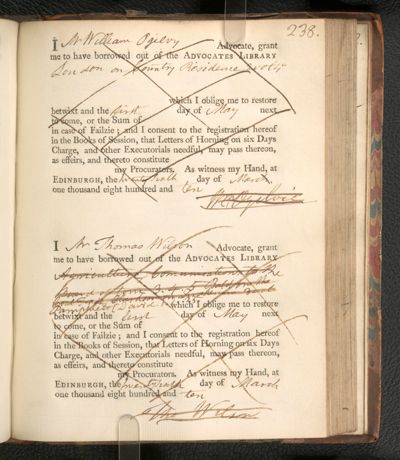 238.
I Mr William Ogilvy Advocate, grant
me to have borrowed out of the ADVOCATES LIBRARY
Loudon on Country Residence
which I oblige me to restore
betwixt and the first day of May next
to come, or the Sum of
in case of Failzie; and I consent to the registration hereof
in the Books of Session, that Letters of Horning on six Days
Charge, and other Executorials needful, may pass thereon,
as effeirs, and thereto constitute
my Procurators. As witness my Hand, at
EDINBURGH, the day of March
one thousand eight hundred and ten
Wm Ogilvie
I Mr Thomas Wilson Advocate, grant
me to have borrowed out of the ADVOCATES LIBRARY
Agricultural Communications to the
Board of
which I oblige me to restore
betwixt and the first day of May next
to come, or the Sum of
in case of Failzie; and I consent to the registration hereof
in the Books of Session, that Letters of Horning on six Days
Charge, and other Executorials needful, may pass thereon,
as effeirs, and thereto constitute
my Procurators. As witness my Hand, at
EDINBURGH, the day of March
one thousand eight hundred and ten
Tho Wilson